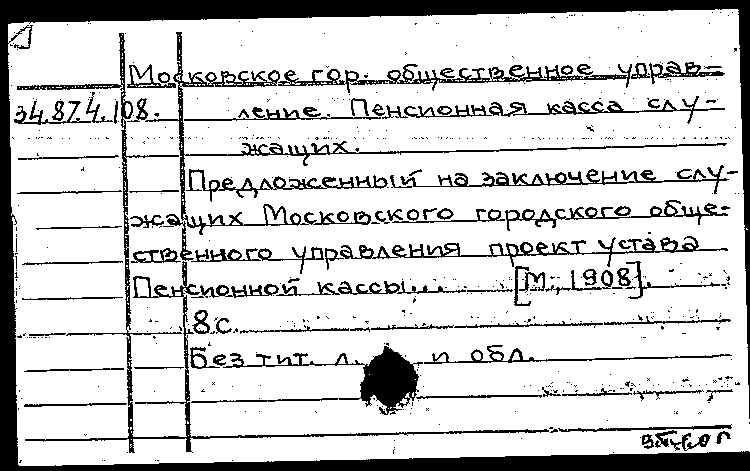 Московское гор. общественное управ-
34.87.4.108. ление. Пенсионная касса слу-
жащих.
Предложенный на заключение слу-
жащих Московского городского обще-
ственного управления проект устава
Пенсионной кассы... [М., 1908].
8 с.
Без тит. л. и обл.